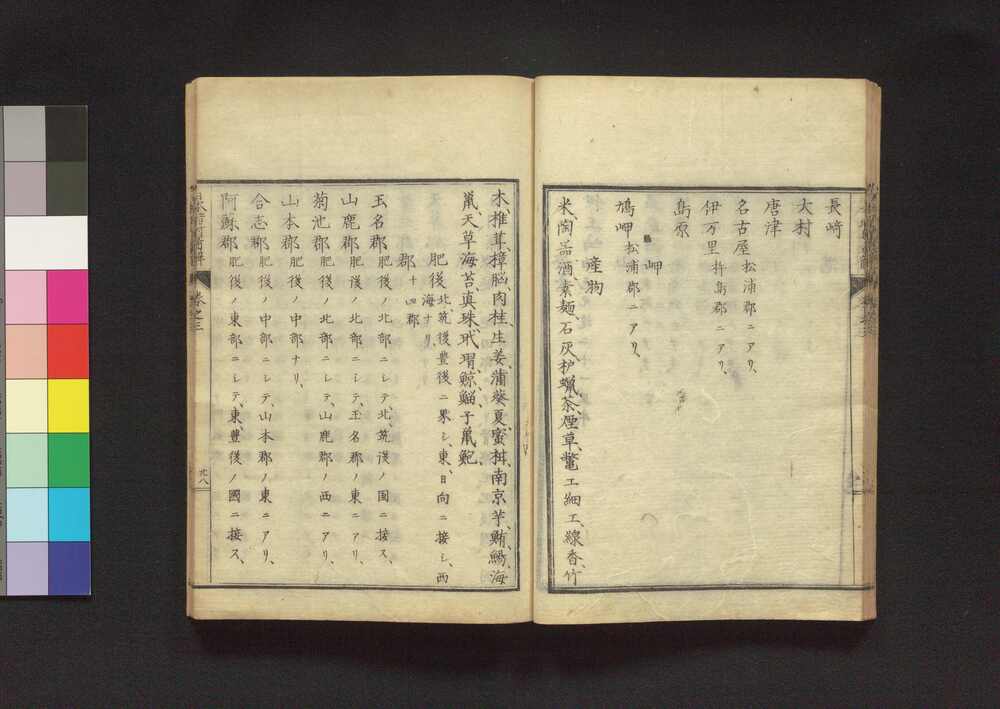 長崎
大村
唐津
名古屋 松浦郡ニアリ、
伊万里 杵島郡ニアリ、
島原
岬
鳩岬 松浦郡ニアリ、
産物
米、陶器、酒、素麺、石灰、炉蝋、茶、煙草、鼈工細工、線香、竹
木、椎茸、樟脳、肉桂、生姜、蒲葵、夏蜜柑、南京芋、鮪、鰯、海
鼠、天草海苔、真珠、玳瑁、鯨、鯔子、鼠、鮑
肥後 北、筑後豊後ニ界シ、東、日向ニ接シ、西
海ナリ、
郡 十四郡
玉名郡 肥後ノ北部ニシテ、北、筑後ノ国ニ接ス、
山鹿郡 肥後ノ北部ニシテ、玉名郡ノ東ニアリ、
菊池郡 肥後ノ北部ニシテ、山鹿郡ノ西ニアリ、
山本郡 肥後ノ中部ナリ、
合志郡 肥後ノ中部ニシテ、山本郡ノ東ニアリ、
阿蘇郡 肥後ノ東部ニシテ、東、豊後ノ國ニ接ス、
巻之三
九八